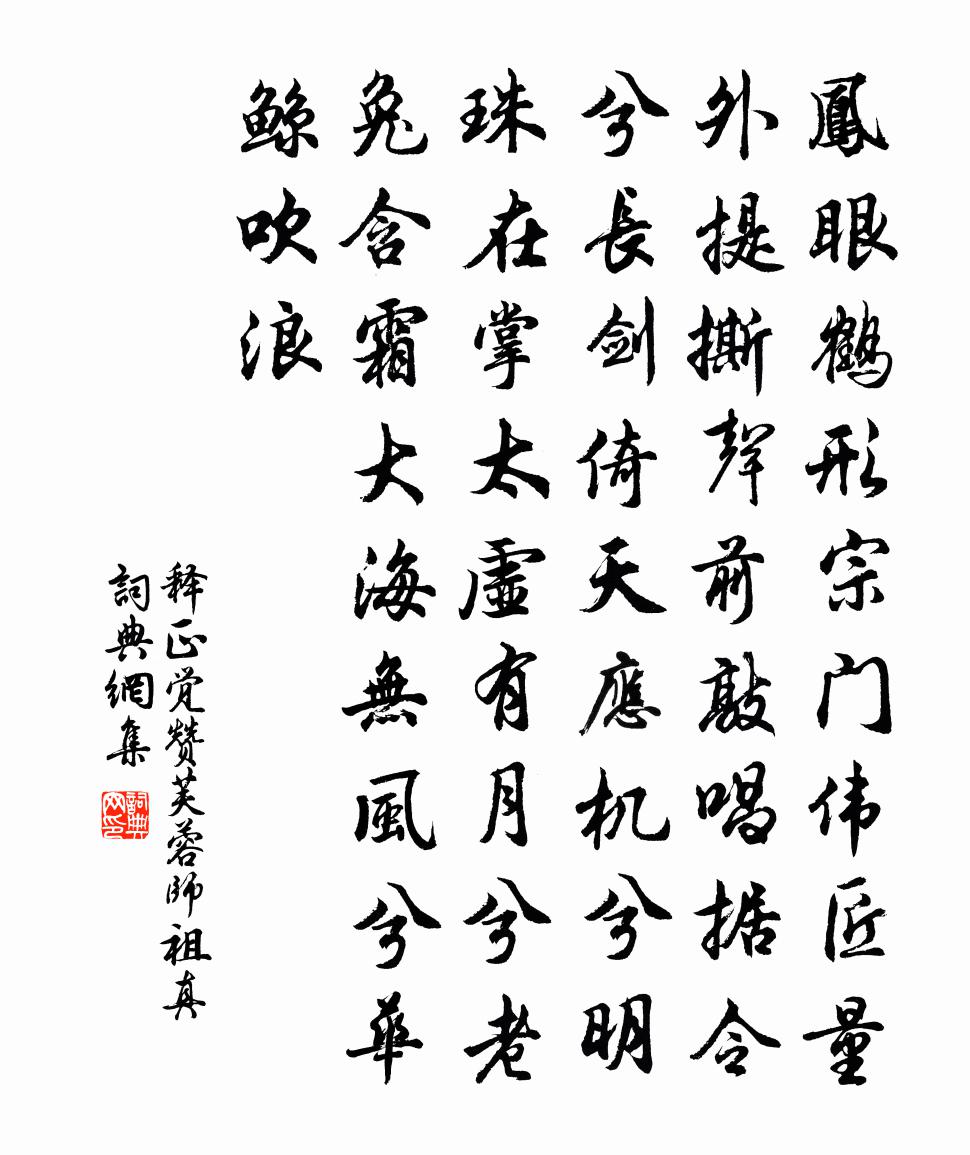 鳳眼鶴形宗门伟匠量
外提撕聲前敲唱据令
兮長剑倚天應机兮明
珠在掌太虚有月兮老
兔含霜大海無風兮華
鲸吹浪
释正觉赞芙蓉師祖真
詞典網集
詞典网印